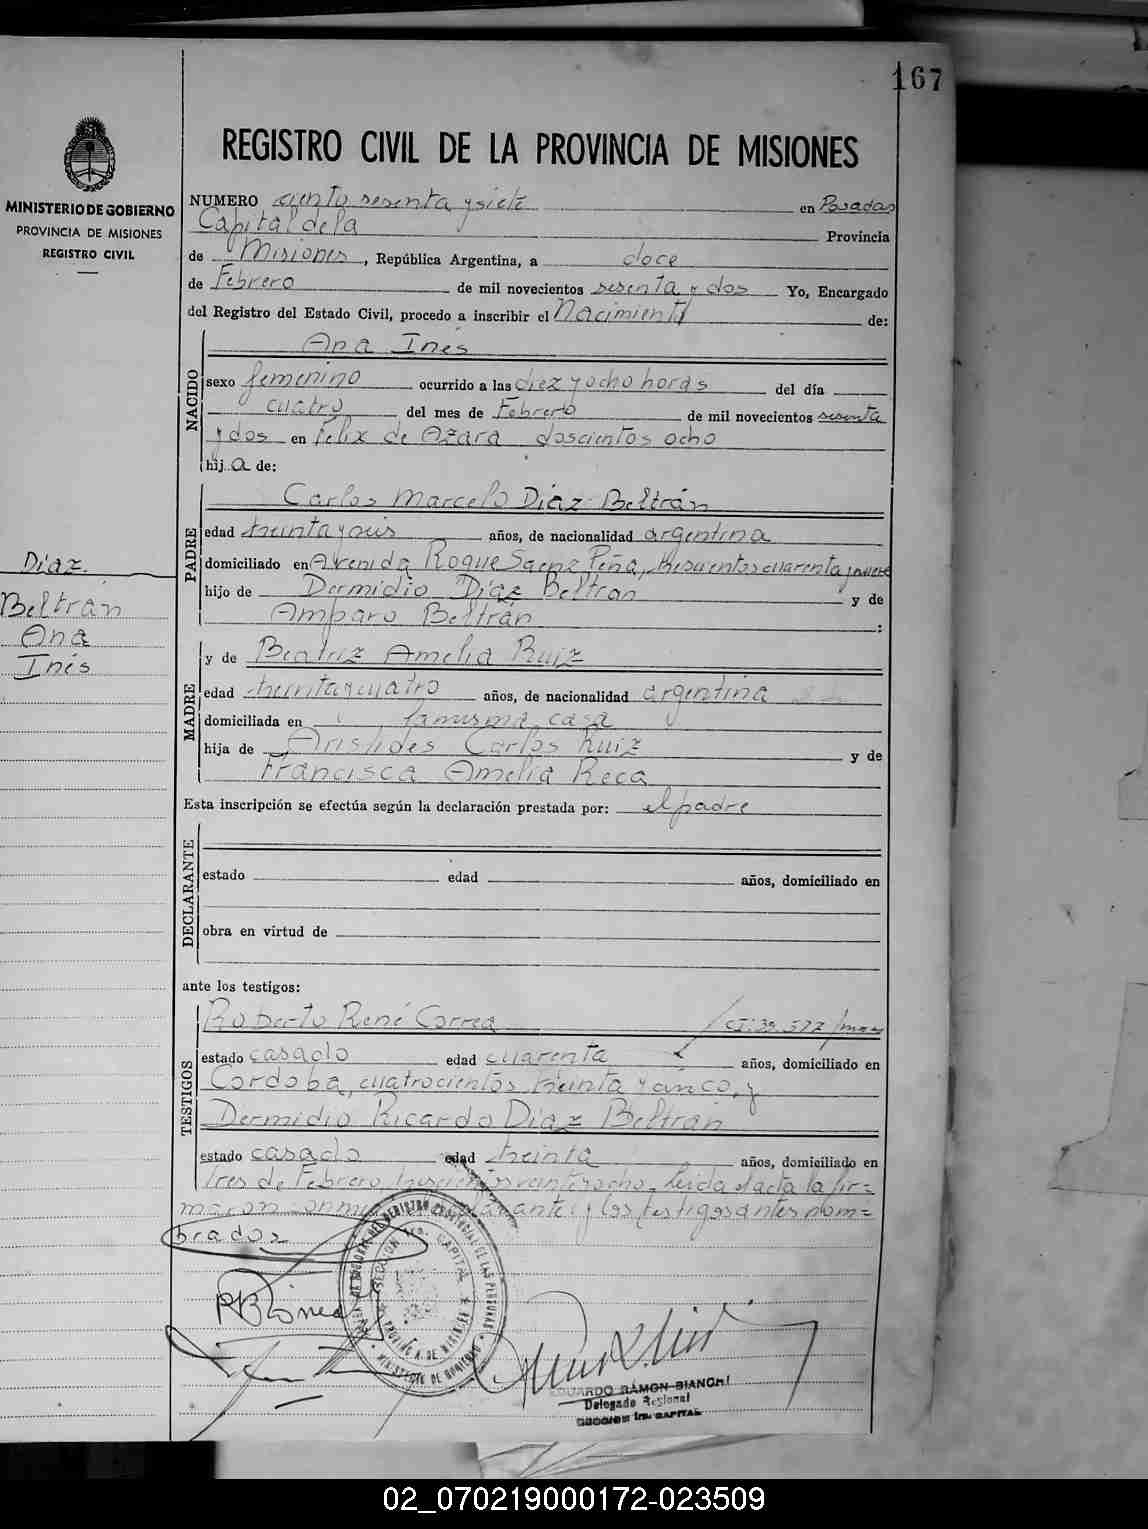 167
REGISTRO CIVIL DE LA PROVINCIA DE MISIONES
MINISTERIO DE GOBIERNO
PROVINCIA DE MISIONES
REGISTRO CIVIL
NUMERO ciento sesenta y siete en Posadas
Capital de la Provincia
de Misiones, República Argentina, a doce
de Febrero de mil novecientos sesenta y dos Yo, Encargado
del Registro del Estado Civil, procedo a inscribir el Nacimiento de:
NACIDO
Ana Inés
sexo femenino ocurrido a las diez y ocho horas del día
cuatro del mes de Febrero de mil novecientos sesenta
y dos en Félix de Azara doscientos ocho
hij a de:
PADRE
Carlos Marcelo Díaz Beltrán
edad treinta y seis años, de nacionalidad argentina
domiciliado en Avenida Roque Saenz Peña, trescientos cuarenta y nueve
hijo de Dermidio Díaz Beltran y de
Amparo Beltrán :
Díaz
Beltrán
Ana
Inés
MADRE
y de Beatriz Amelia Ruiz
edad treinta y cuatro años, de nacionalidad argentina
domiciliada en la misma casa
hija de Aristides Carlos Ruiz y de
Francisca Amelia Reca
Esta inscripción se efectúa según la declaración prestada por: el padre
DECLARANTE
estado edad años, domiciliado en
obra en virtud de
ante los testigos:
TESTIGOS
Roberto René Correa
estado casado edad cuarenta años, domiciliado en
Córdoba, cuatrocientos treinta y cinco, y
Dermidio Ricardo Díaz Beltrán
estado casado edad treinta años, domiciliado en
tres de Febrero, trescientos veintiocho. Leida el acta la fir=
maron conmigo y los testigos antes nom=
brados
EDUARDO RAMON BIANCHI
Delegado Regional
SECCION 1ra. CAPITAL
02_070219000172-023509